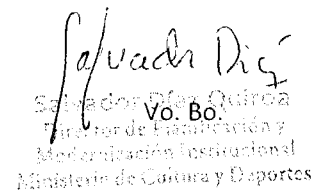 Salvador Díaz
Salvador Díaz Quiroa
Vo. Bo.
Director de Planificación y
Modernización Institucional
Ministerio de Cultura y Deportes